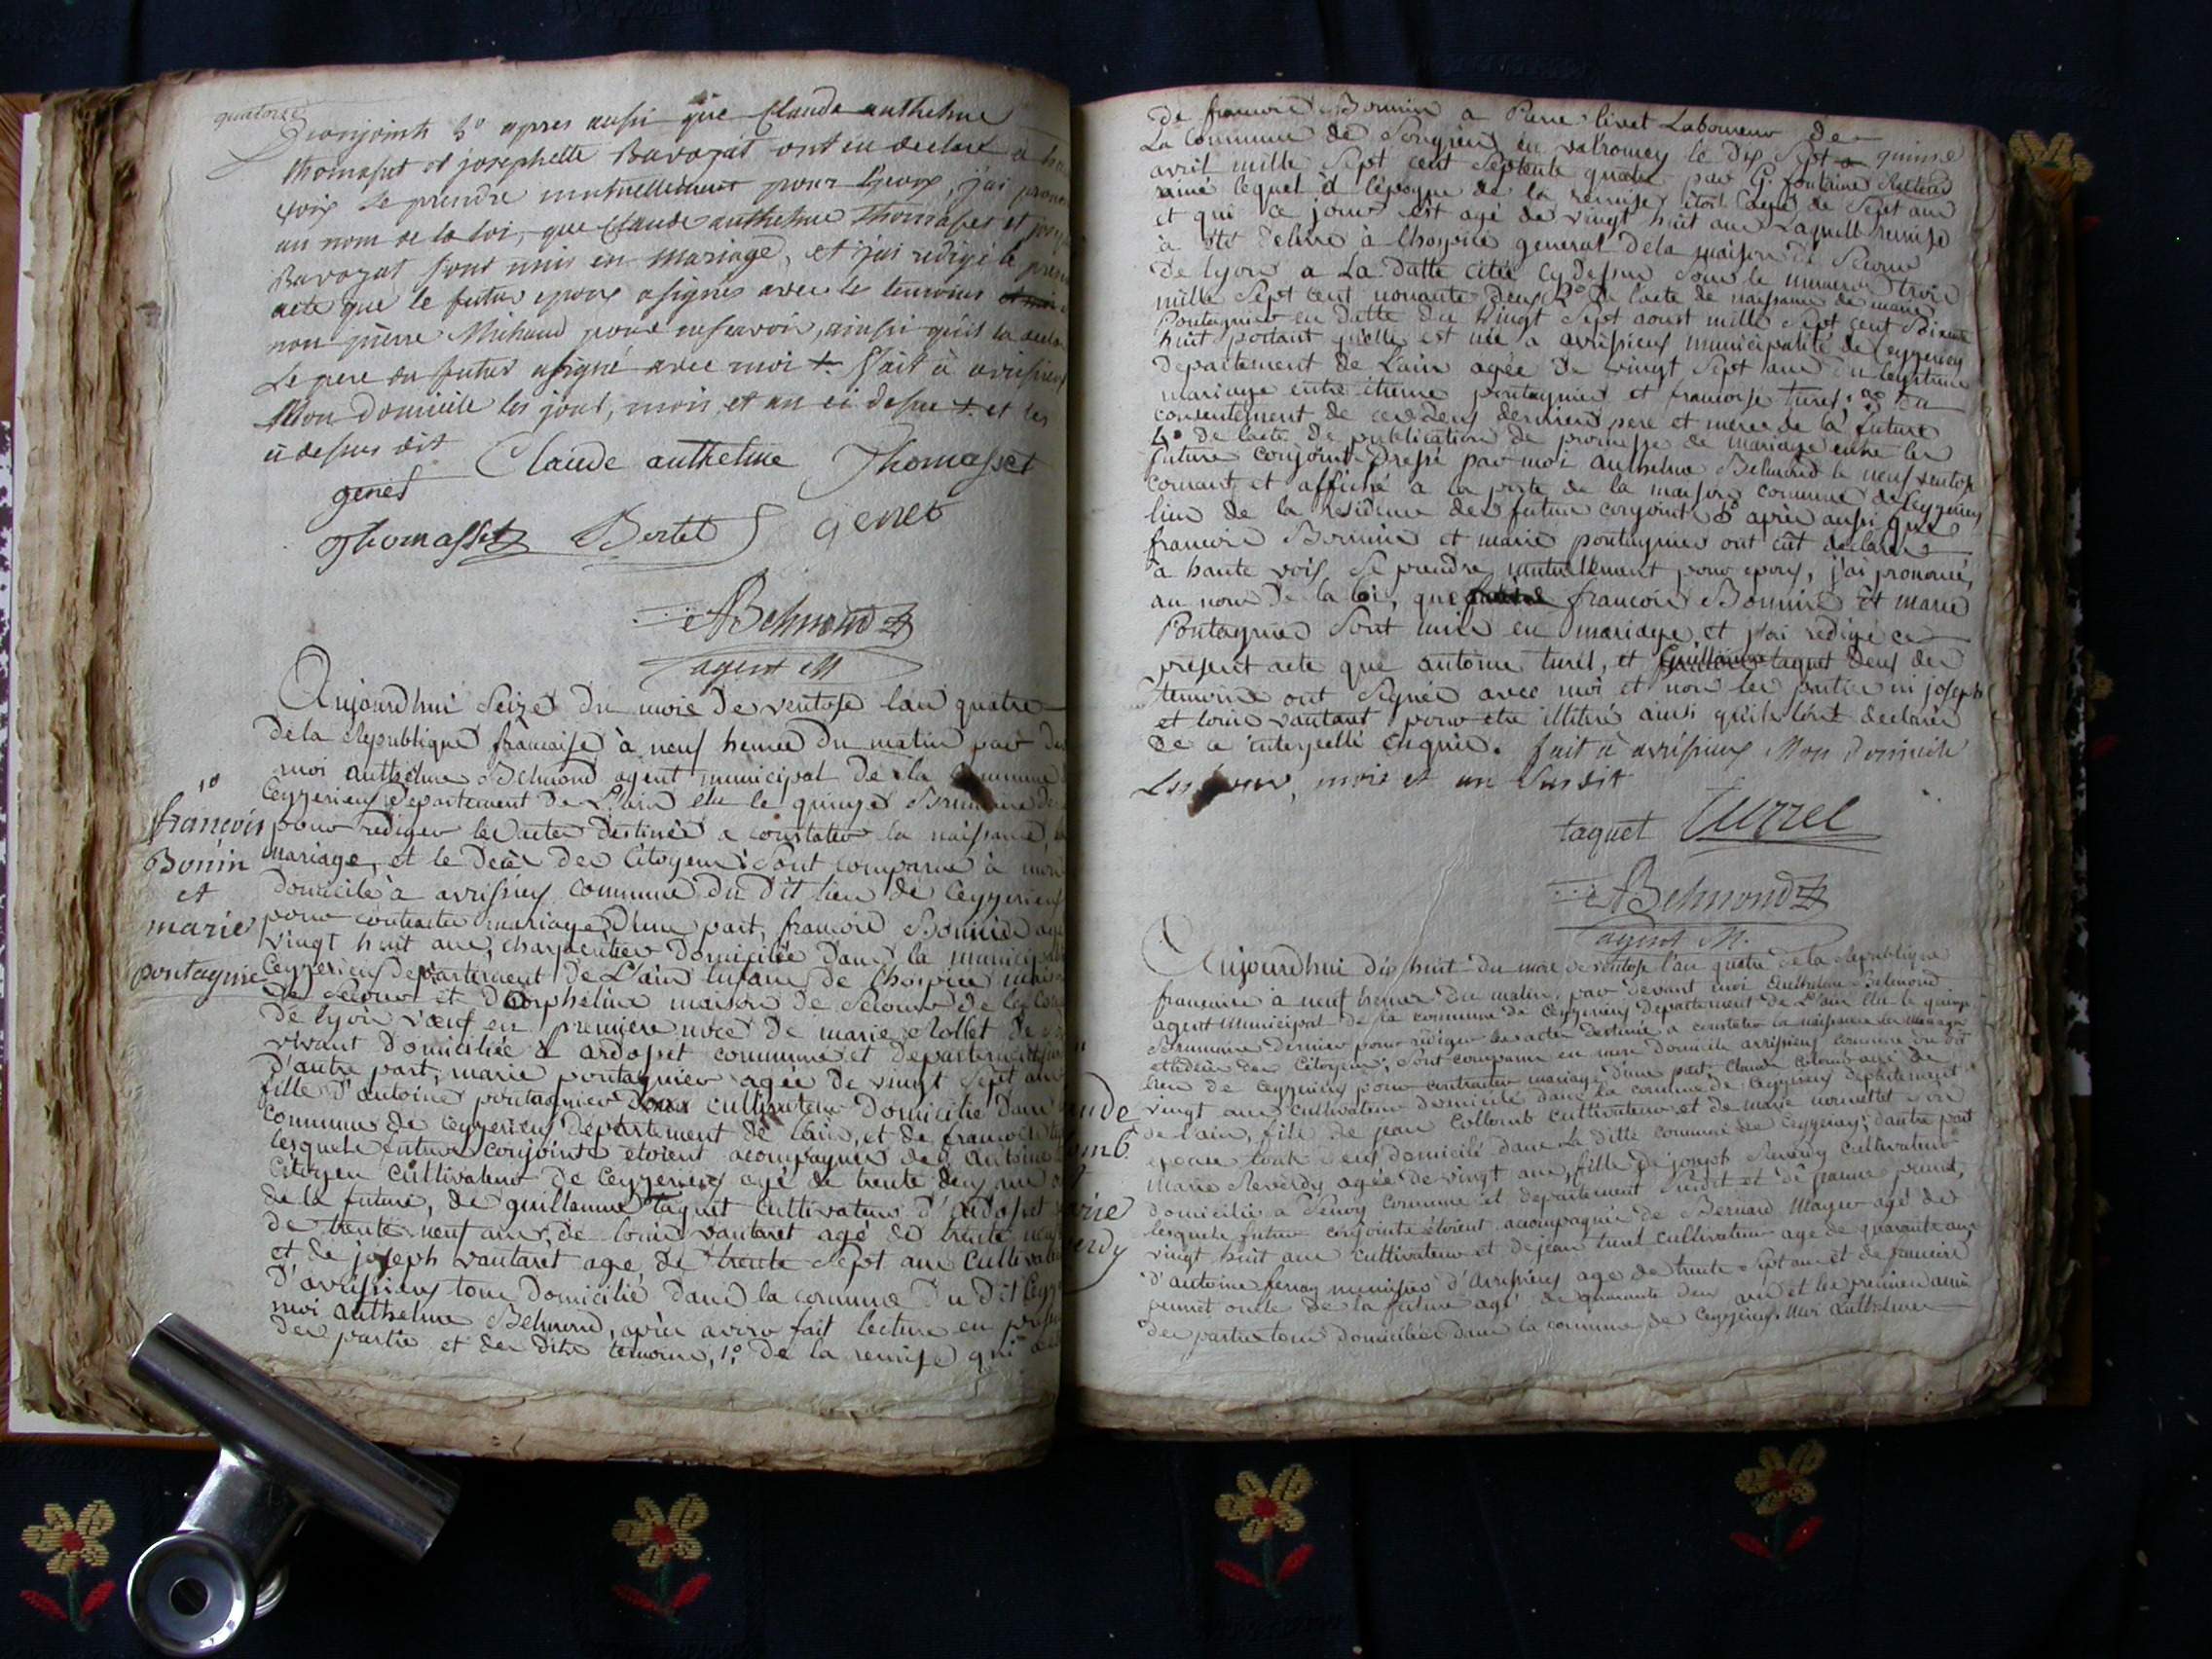 quatorze
Dconjoints 5° apres aussi que Claude anthelme
thomasset et josephette Bavozat ont eu declaré à h
voix se prendre mutuellement pour Epoux, j'ai pron
au nom de la loi, que Claude anthelme Thomasset et jos
Bavozat sont unis en Mariage, et j'ai redigé le prés
acte que le futur epoux a signés avec les temoins
non pierre Michaud pour ne savoir, ainsi qu'il la decla
Le pere du futur a signé avec moi +. Fait à avrissieux
Mon domicile les jour, mois et an ci dessus +. et les
ci dessus dit
Claude anthelme Thomasset
genet
Thomasset Bertet genet
ABelmond
agent M
Aujourdhui Seize du mois de ventose lan quatre
dela Republique francaise à neuf heures du matin par de
moi anthelme Belmond agent municipal de la commune
Ceyzerieux departement de L'ain elu le quinze Brumaire de
1°
françois
Bonin
et
marie
pontagnie
pour rediger les actes destinés a constater la naissance, l
mariage, et le décès des Citoyens; sont comparus à mon
domicile à avrissieux commune du dit lieu de Ceyzerieux
pour contracter mariage, d'une part, francois Bonnin ag
vingt huit ans, charpentier domicilié dans la municip
Ceyzerieux departement de L'ain enfant de lhospice mais
de Secours et d'orpheline maison de Secours de
de lyon veuf en premiere noce de marie Rollet de
vivant domiciliée à ardosset commune et departement
d'autre part, marie pontagnier agée de vingt Sept ans
fille d'antoine pontagnier cultivateur domicilié dans
commune de ceyzerieux departement de lain, et de francoise
lesquels futurs conjoints étoient acompagnés de antoine
Citoyen cultivateur de Ceyzerieux agé de trente deux ans
de la future, de guillaume taquet cultivateur d'ardosset
de trente neuf ans, de louis vautaret agé de trente neuf
et de joseph vautaret age de trente Sept ans cultivate
d'avrissieux tous domicilié dans la commune du dit Ceyz
moi anthelme Belmond, après avoir fait lecture en prése
des partie et des dits temoins, 1° de la remise qui
de francois Bonnin a Pierre livet Laboureur de
La Commune de Songieu en valromey le dix Sept quinse
avril mille Sept cent Septente quatre par G. fontaine Recteur
lequel à lepoque de la remise étoit agé de Sept ans
et qui ce jour est agé de vingt huit ans Laquelle remise
à été delivré à lhospice general dela maison de Secours
de lyon a La datte citée cy dessus sous le numero trois
mille Sept cent nonante deux 2° De l'acte de naissance de marie
Pontagnier en datte du vingt Sept aoust mille Sept cent Soixante
huit portant quelle est née a avrissieux municipalité de Ceyzerieux
departement de Lain agée de vingt Sept ans du legitime
mariage entre etienne pontagnier et francoise turel; 3° du
consentement de ces deux derniers pere et meres de la future
4° de lacte de publication de promesse de mariage entre les
future conjoints dressé par moi anthelme Belmond le neuf ventose
courant et affiché a la porte de la maison commune de Ceyzerieux
lieu de la residence des future conjoints 5° après aussi que
francois Bonnin et marie pontagnier ont eût declarer
à haute voix se prendre mutuellement pour epoux, j'ai prononcé,
au nom de la loi, que francois Bonnin et marie
Pontagnier Sont unis en mariage, et j'ai redigé ce
present acte que antoine turel, et Guillaume taquet deux des
temoins ont signés avec moi et non les parties ni joseph
et louis vautaret pour etre illitiré ainsi qu'ils l'ont declarés
de ce interpellé enquis. fait à avrissieux Mon domicile
Les jour, mois et an Susdit
taquet turrel
ABelmond
agent M.
ude
omb.
rie
erdy
Aujourdhui dix huit du mois de ventose l'an quatre de la Republique
francaise à neuf heures du matin, par devant moi Anthelme Belmond
agent Municipal de la commune de Ceyzerieux departement de L'ain elu le quinze
Brumaire dernier pour rédiger les actes destinés a constater la naissance les mariages
et le deces des Citoyens; Sont comparus en mon domicile avrissieux commune du dit
lieu de Ceyzerieux pour contracter mariage d'une part, Claude Colomb agé de
vingt ans cultivateur domicilié dans la commune de Ceyzerieux departement
de l'ain, fils de jean Collomb cultivateur et de marie
epouse tous deux domicilié dans La ditte commune de Ceyzerieux; d'autre part
marie Reverdy agée de vingt ans, fille de joseph Reverdy cultivateur
domiciliée à commune et departement Susdit et de jeanne
lesquels futurs conjoints étoient acompagnés de Bernard Mayer agé de
vingt huit ans cultivateur et de jean turel cultivateur age de quarante ans
d'antoine menusier d'Avrissieux age de trente Sept ans et de francois
oncle de la future agé de quarante deux ans et les premiers amis
des parties tous domiciliés dans la commune de Ceyzerieux. Moi Anthelme